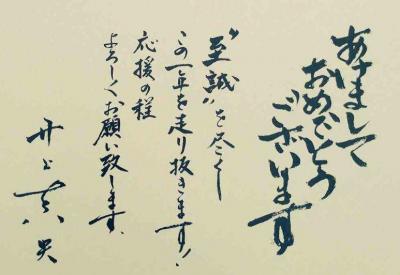 あけまして
おめでとう
ございます
"至誠"を尽くし
この一年を走り抜きます！
応援の程
よろしくお願い致します。
井上真央